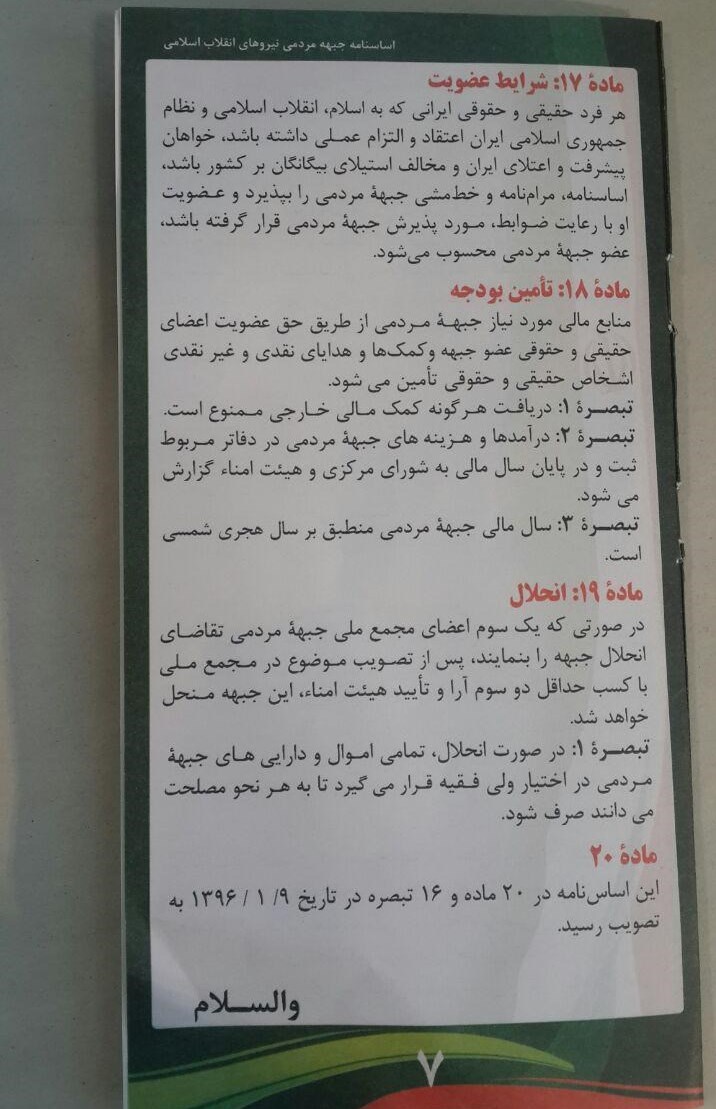 اساسنامه جبهه مردمی نیروهای انقلاب اسلامی
مادهٔ ۱۷: شرایط عضویت
هر فرد حقیقی و حقوقی ایرانی که به اسلام، انقلاب اسلامی و نظام
جمهوری اسلامی ایران اعتقاد و التزام عملی داشته باشد، خواهان
پیشرفت و اعتلای ایران و مخالف استیلای بیگانگان بر کشور باشد،
اساسنامه، مرام‌نامه و خط‌مشی جبههٔ مردمی را بپذیرد و عضویت
او با رعایت ضوابط، مورد پذیرش جبههٔ مردمی قرار گرفته باشد،
عضو جبههٔ مردمی محسوب می‌شود.
مادهٔ ۱۸: تأمین بودجه
منابع مالی مورد نیاز جبههٔ مردمی از طریق حق عضویت اعضای
حقیقی و حقوقی عضو جبهه وکمک‌ها و هدایای نقدی و غیر نقدی
اشخاص حقیقی و حقوقی تأمین می شود.
تبصرهٔ ۱: دریافت هرگونه کمک مالی خارجی ممنوع است.
تبصرهٔ ۲: درآمدها و هزینه های جبههٔ مردمی در دفاتر مربوط
ثبت و در پایان سال مالی به شورای مرکزی و هیئت امناء گزارش
می شود.
تبصرهٔ ۳: سال مالی جبههٔ مردمی منطبق بر سال هجری شمسی
است.
مادهٔ ۱۹: انحلال
در صورتی که یک سوم اعضای مجمع ملی جبههٔ مردمی تقاضای
انحلال جبهه را بنمایند، پس از تصویب موضوع در مجمع ملی
با کسب حداقل دو سوم آرا و تأیید هیئت امناء، این جبهه منحل
خواهد شد.
تبصرهٔ ۱: در صورت انحلال، تمامی اموال و دارایی های جبههٔ
مردمی در اختیار ولی فقیه قرار می گیرد تا به هر نحو مصلحت
می دانند صرف شود.
مادهٔ ۲۰
این اساس‌نامه در ۲۰ ماده و ۱۶ تبصره در تاریخ ۹/ ۱ / ۱۳۹۶ به
تصویب رسید.
والسلام
۷